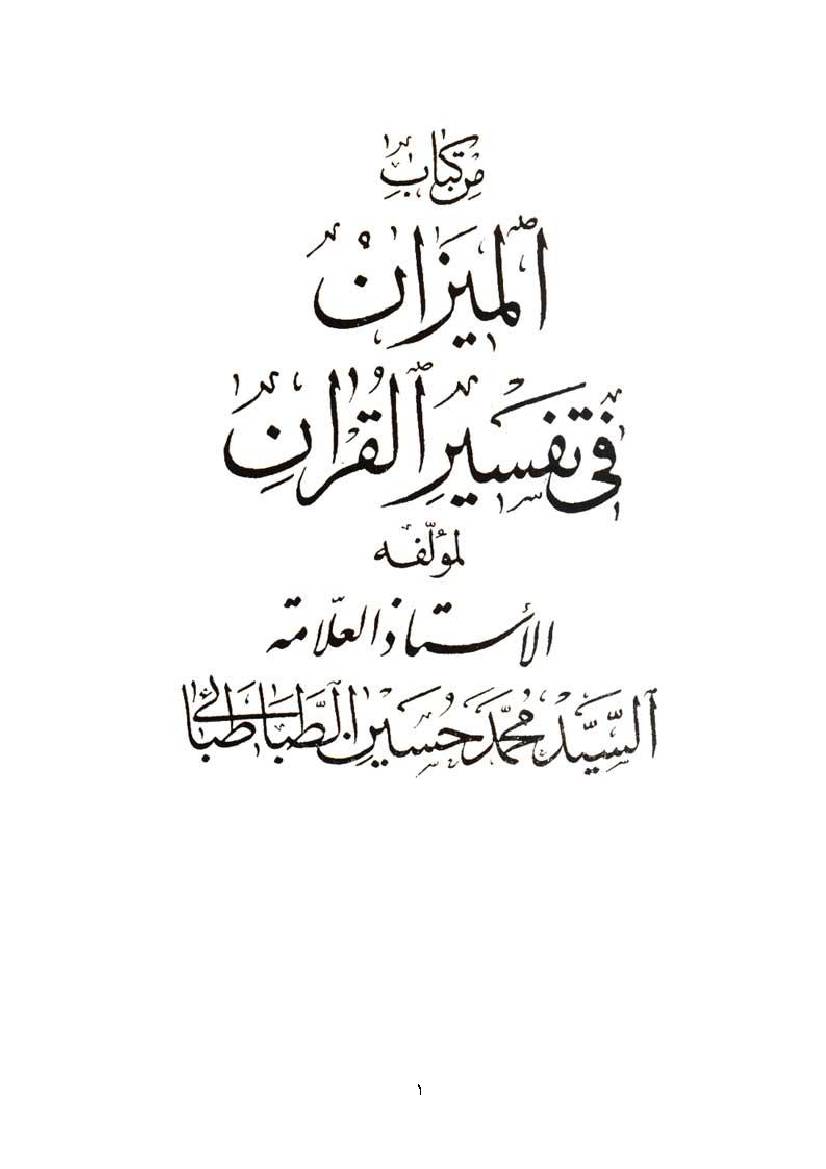 مِن كتابِ
ٱلميزان
في تفسيرِ ٱلقرانِ
لمؤلّفه
الأستاذ العلّامة
ٱلسَّيِّد مُحمَّد حُسَين ٱلطَّباطَبائي
١